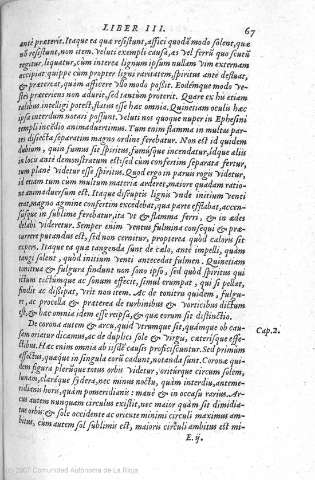 LIBER III. 67
ante præterit. Itaque ea quæ resistunt, affici quodãmodo solent, quæ
nõ resistunt, non item. Veluti exempli causa, æs vel ferrũ quo scutũ
tegitur, liquatur, cum interea lignum ipsum nullam vim externam
accipiat quippe cum propter ligni raritatem, spiritus ante defluat,
& prætereat, quàm afficere vllo modo possit. Eodemque modo ve-
stes præteriens non adurit, sed tantùm proterit. Quare ex his etiam
talibus intelligi potest, flatus esse hæc omnia. Quinetiam oculis hæc
ipsa interdum notari possunt. Veluti nos quoque nuper in Ephesini
templi incẽdio animaduertimus. Tum enim flamma in multas par-
teis dissecta separatim magno ordine ferebatur. Non est id quidem
dubium, quin fumus sit spiritus, fumúsque incendatur, idque aliis
in locis ante demonstratum est: sed cum confertim separata fertur,
tum planè videtur esse spiritus. Quod ergo in paruis rogis videtur,
id etiam tum cum multum materiæ arderet, maiore quadam ratio-
ne animaduersum est. Itaque disruptis lignis vnde initium venti
erat, magno agmine confertim excedebat, qua parte efflabat, accen-
súsque in sublime ferebatur, ita vt & flamma ferri, & in ædes
delabi videretur. Semper enim ventus fulmina consequi & præ-
currere putandus est, sed non cernitur, propterea quòd coloris sit
expers. Itaque ea quæ tangenda sunt de cælo, ante impelli, quàm
tangi solent, quòd initium venti antecedat fulmen. Quinetiam
tonitrua & fulgura findunt non sono ipso, sed quòd spiritus qui
ictum ictũmque ac sonum effecit, simul erumpat, qui si pellat,
findit ac dissipat, vrit non item. Ac de tonitru quidem, fulgu-
re, ac procella & præterea de turbinibus & vorticibus dictum
est, & hæc omnia idem esse reipsa, & quæ eorum sit distinctio.
De corona autem & arcu, quid vtrumque sit, quámque ob cau-
sam oriatur dicamus, ac de duplici sole & virgis, caterísque effe-
ctibus. Hæc enim omnia ab iisdẽ causis proficiscuntur. Sed primùm
affectus, quæque in singula eorũ cadunt, notanda sunt. Coronæ qui-
dem figura plerũque totus orbis videtur, oritúrque circum solem,
lunam, claráque sydera, nec minus noctu, quàm interdiu, antemе-
ridianis horis, quàm pomeridianis: manè & in occasu rariùs. Ar-
cus autem nunquam circulus existit, nec maior quàm sit dimidia-
tus orbis: & sole occidente ac oriente minimi circuli maximus am-
bitus, cum autem sol sublimis est, maioris circuli ambitus est mi-
E. ij.
Cap. 2.
(c) 2007 Comunidad Autónoma de La Rioja